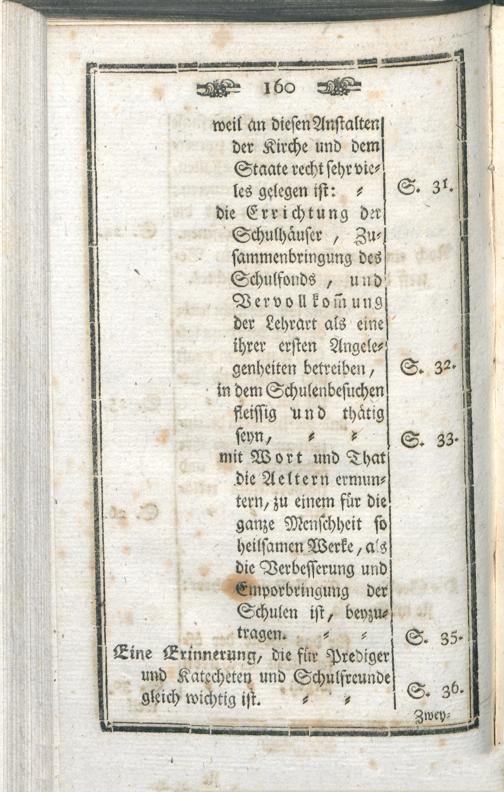 160
weil an diesen Anstalten
der Kirche und dem
Staate recht sehr vie-
les gelegen ist: = S. 31.
die Errichtung der
Schulhäuser, Zu-
sammenbringung des
Schulfonds, und
Vervollkom̅ung
der Lehrart als eine
ihrer ersten Angele-
genheiten betreiben, S. 32.
in dem Schulenbesuchen
fleissig und thätig
seyn, = = S. 33.
mit Wort und That
die Aeltern ermun-
tern, zu einem für die
ganze Menschheit so
heilsamen Werke, als
die Verbesserung und
Emporbringung der
Schulen ist, beyzu-
tragen. = = S. 35.
Eine Erinnerung, die für Prediger
und Katecheten und Schulfreunde
gleich wichtig ist. = = S. 36.
Zwey-